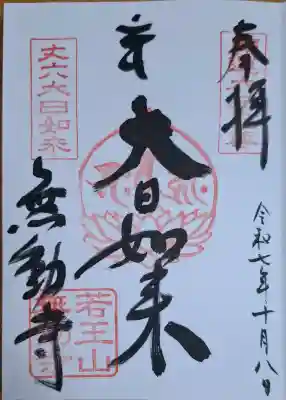 奉拝
令和七年十月八日
大日如来
丈六大日如来
無動寺
若王山
無動寺